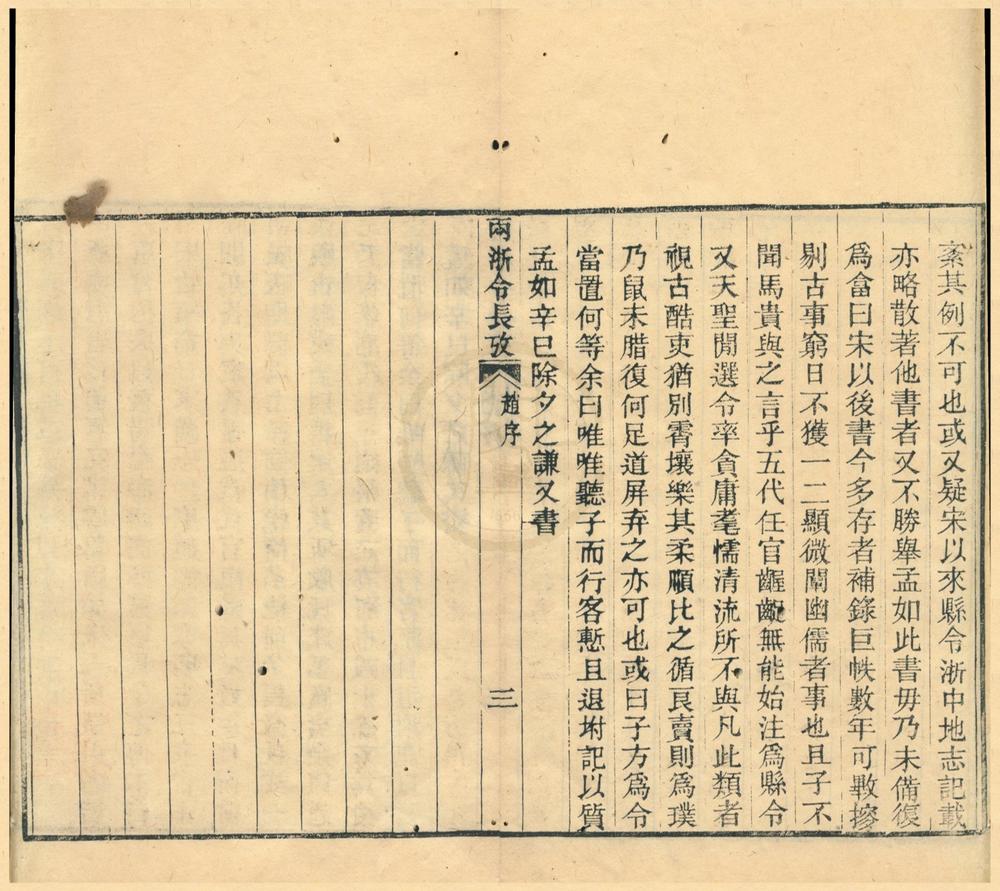 案其例不可也或又疑宋以來縣令浙中地志記載
亦略散著他書者又不勝舉孟如此書毋乃未備復
爲畣曰宋以後書今多存者補錄巨帙數年可斁摎
剔古事窮日不獲一二顯微闡幽儒者事也且子不
聞馬貴與之言乎五代任官齷齪無能始注爲縣令
又天聖閒選令率貪庸耄懦清流所不與凡此類者
視古酷吏猶別霄壤樂其柔順比之循良賣則爲璞
乃鼠未腊復何足道屏弃之亦可也或曰子方爲令
當置何等余曰唯唯聽子而行客慙且退坿記以質
孟如辛巳除夕之謙又書
兩浙令長攷
趙序
三